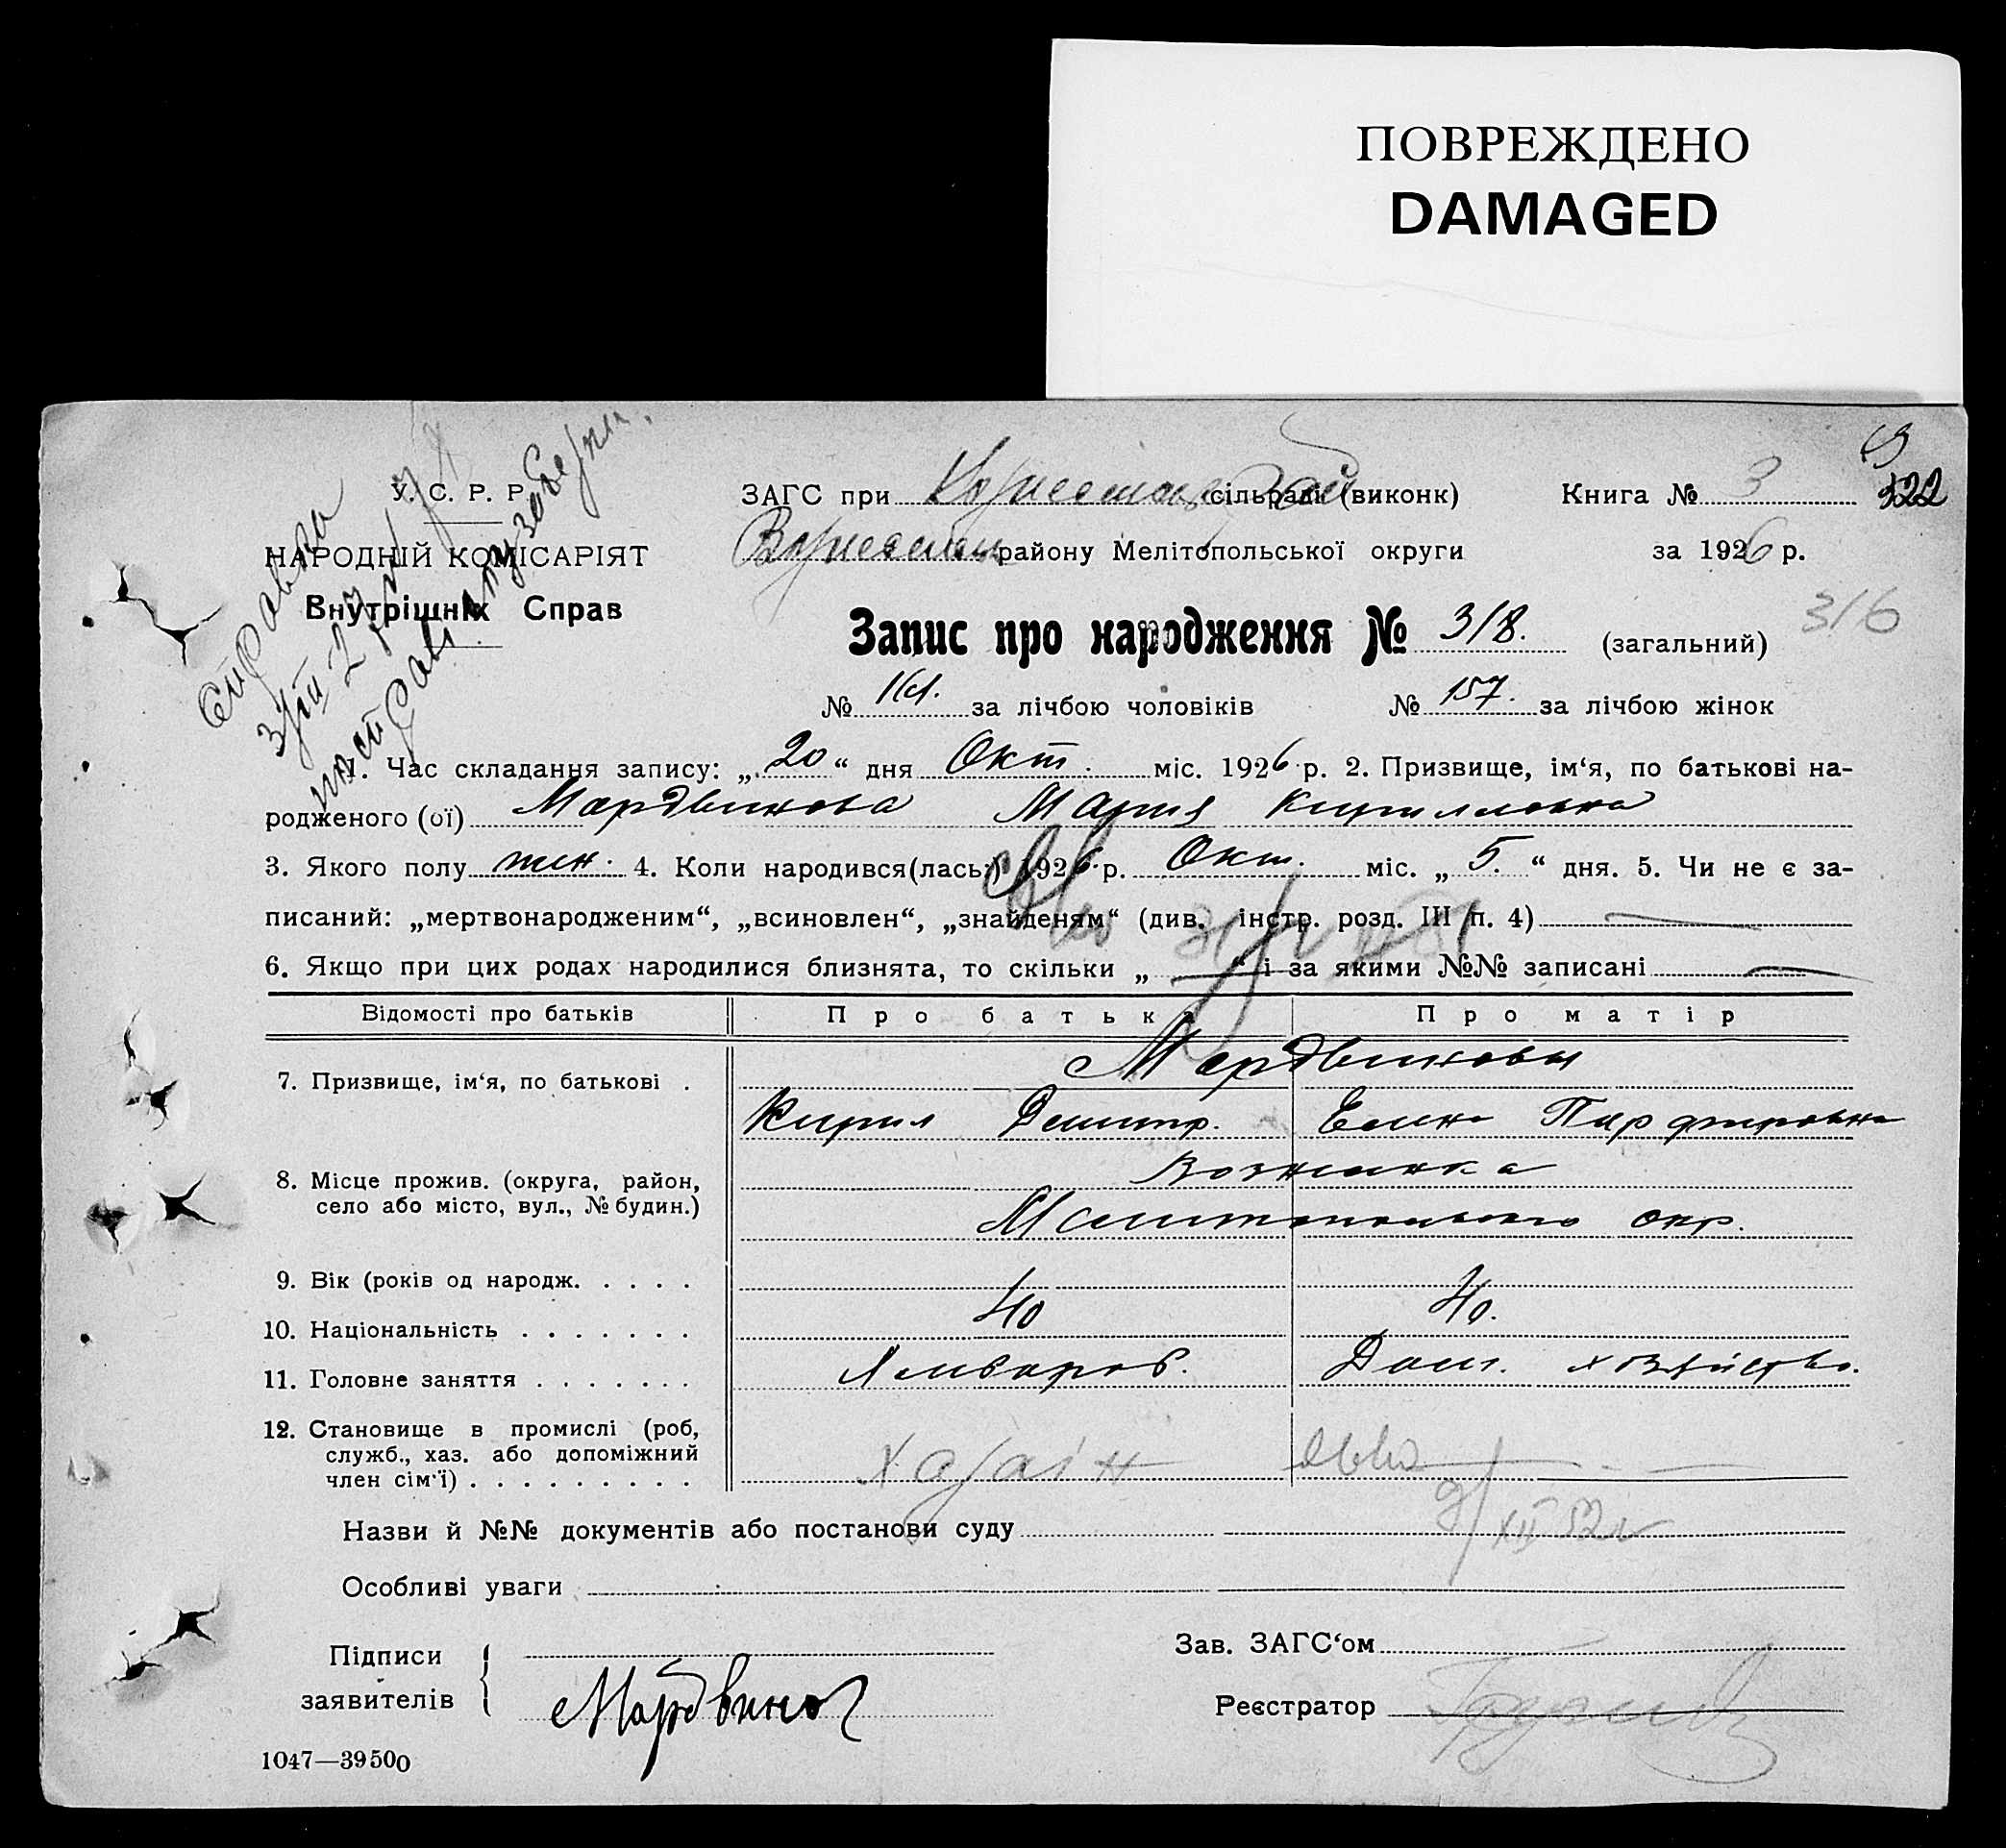 ПОВРЕЖДЕНО
DAMAGED
У. С. Р. Р.
НАРОДНІЙ КОМІСАРІЯТ
Внутрішніх Справ
Справка
ЗАГС при сільраді (виконк) Книга № 3 322
району Мелітопольської округи за 1926 р.
Запис про народження № 318. (загальний) 316
№ 161. за лічбою чоловіків № 157. за лічбою жінок
1. Час складання запису: „ 20 “ дня Окт. міс. 1926 р. 2. Призвище, ім‘я, по батькові на-
родженого (ої) Мардвинова Мария Кирилловна
3. Якого полу жен. 4. Коли народився(лась) 1926 р. Окт. міс. „ 5. “ дня. 5. Чи не є за-
писаний: „мертвонародженим“, „всиновлен“, „знайденям“ (див. інстр. розд. III п. 4)
6. Якщо при цих родах народилися близнята, то скільки „ — “ і за якими №№ записані —
Відомості про батьків Про батька Про матір
7. Призвище, ім‘я, по батькові . Мардвиновы
Кирил Дмитр. Елена Парфировна
8. Місце прожив. (округа, район, село або місто, вул., № будин.)
Мелитопольского окр.
9. Вік (років од народж. . . . .
40 40.
10. Національність . . . . . . .
11. Головне заняття . . . . . . . Хлебороб. Дом. хозяйство.
12. Становище в промислі (роб, служб., хаз. або допоміжний член сім‘ї) . . . . . . . . . хазаін
Назви й №№ документів або постанови суду XII 52 г
Особливі уваги
Підписи заявителів Мардвинов
Зав. ЗАГС‘ом
Реєстратор
1047—39500